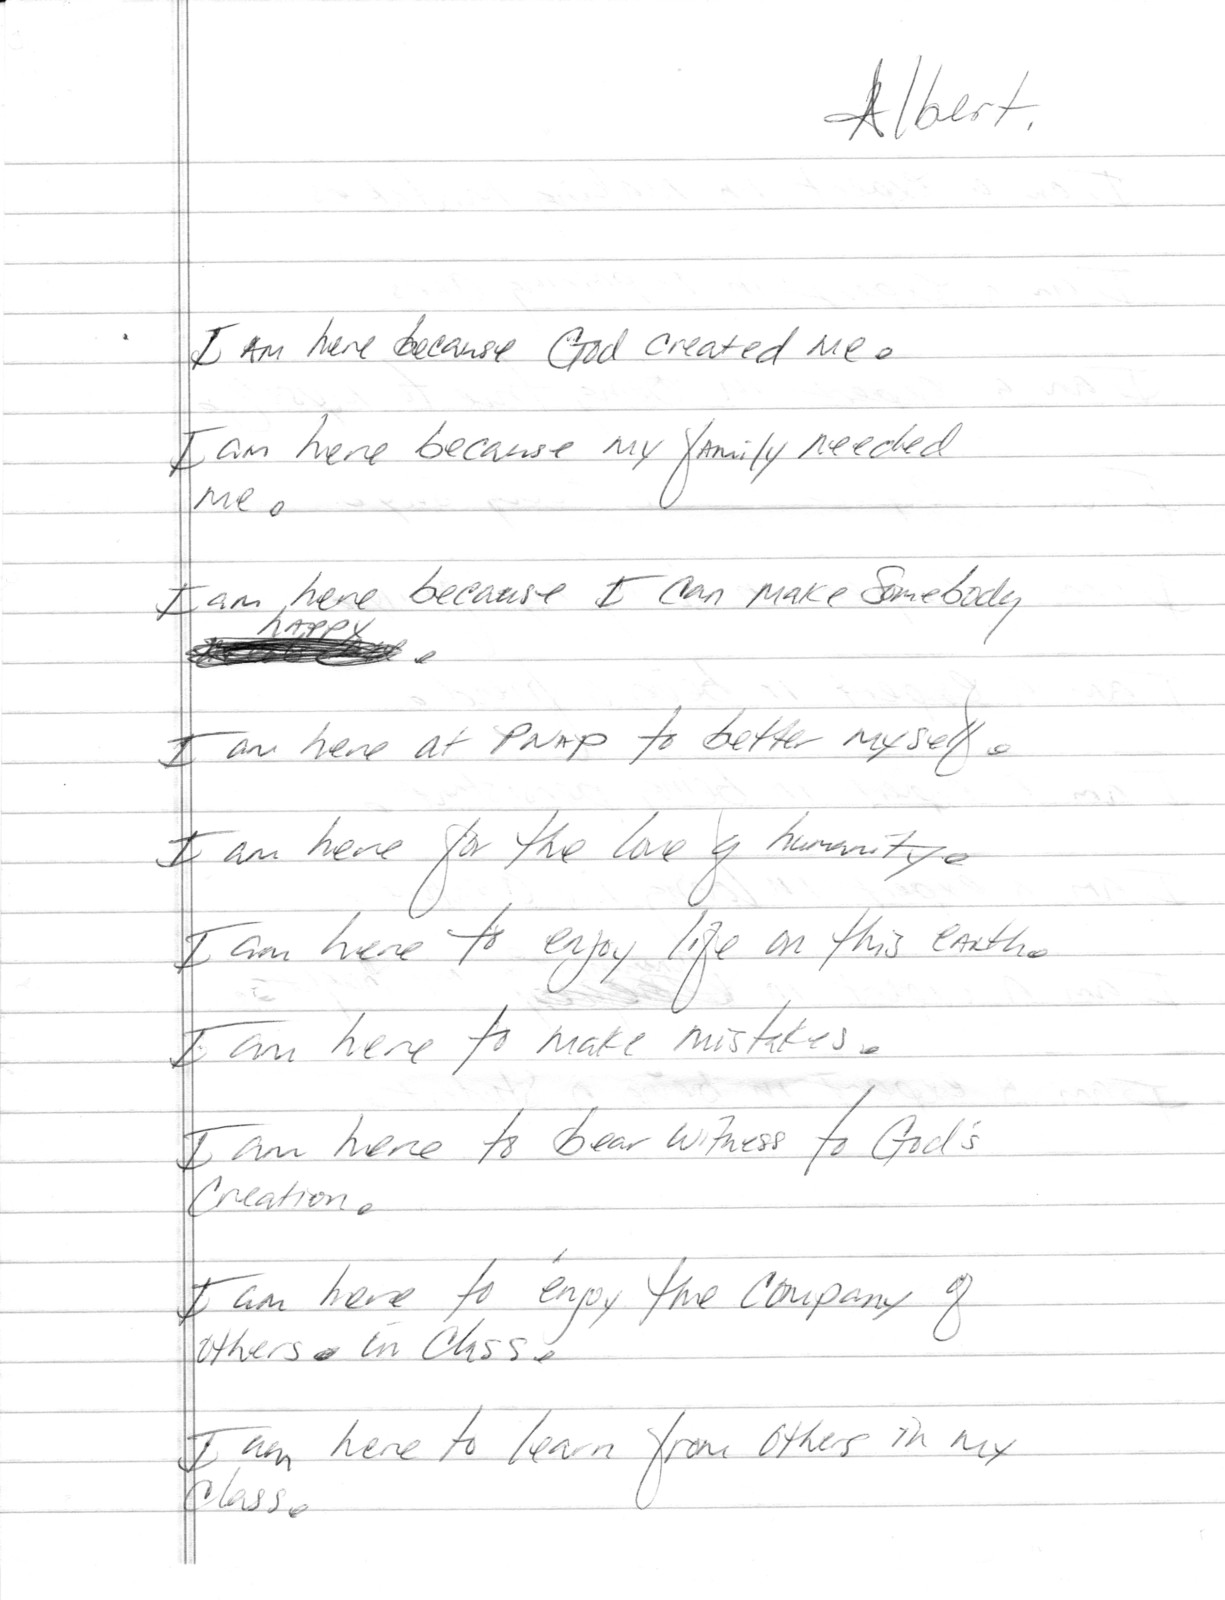 Albert.
I Am here because God created me.
I am here because my family needed
me.
I am here because I can make Somebody
happy
.
I am here at PNAP to better myself.
I am here for the love of humanity.
I am here to enjoy life on this earth.
I am here to make mistakes.
I am here to bear witness to God's
Creation.
I am here to enjoy the Company of
others. in Class.
I am here to learn from others in my
Class.